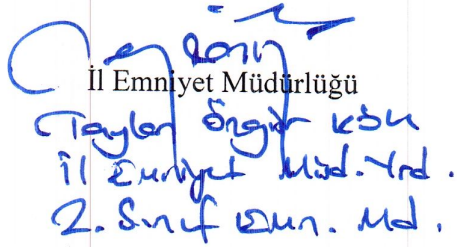 İl Emniyet Müdürlüğü
Taylan Özgür
İl Emniyet Müd. Yrd.
2. Sınıf Emn. Md.